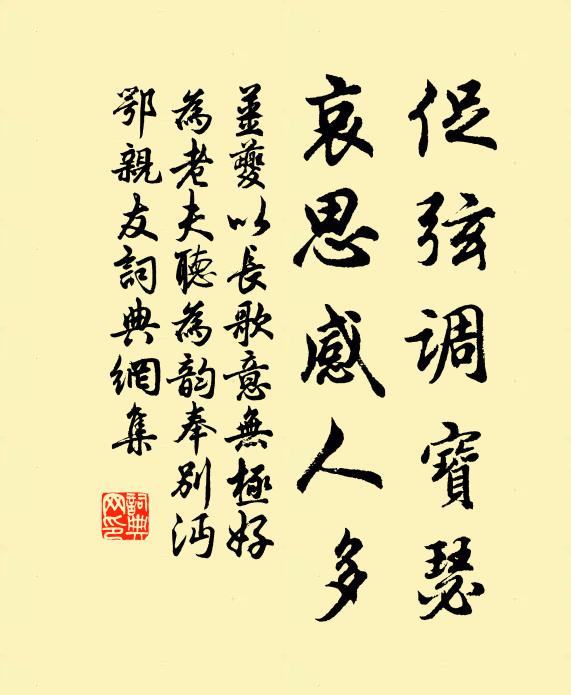 促弦調寶瑟
哀思感人多
姜夔以長歌意無極好
為老夫聽為韵奉別沔
鄂親友詞典網集
詞典網印